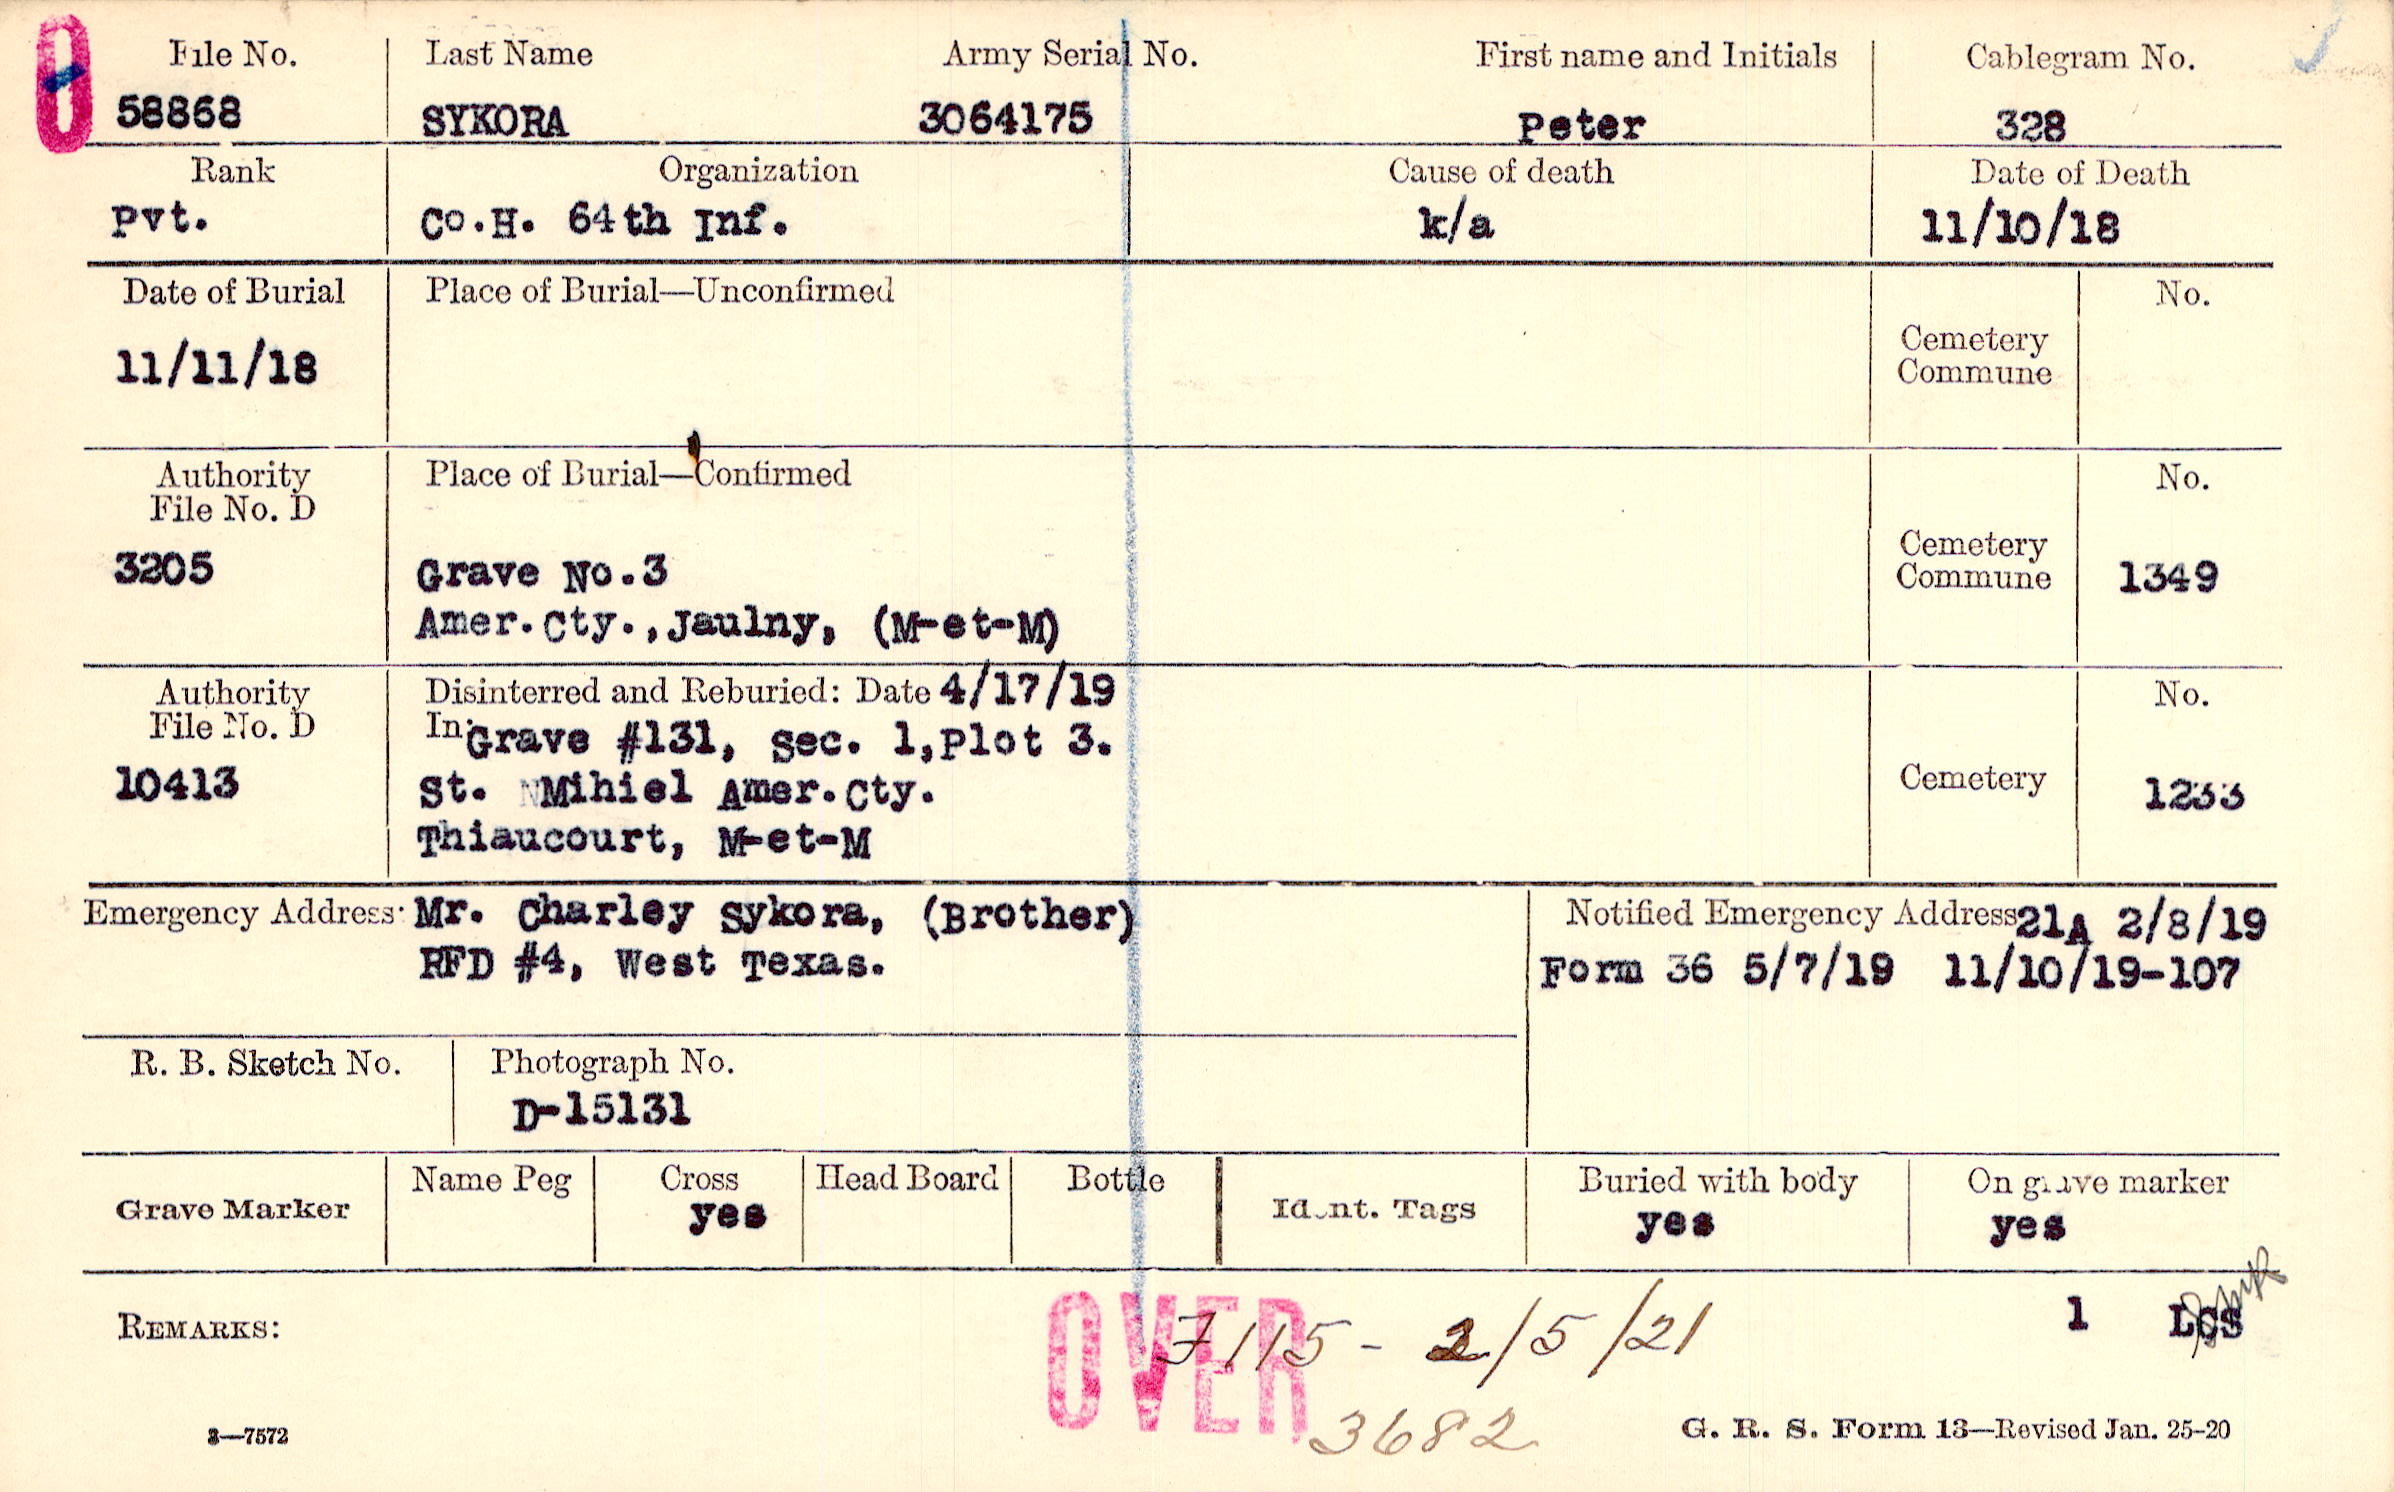 File No. Last Name Army Serial No. First name and Initials Cablegram No.
0 58868 SYKORA 3064175 Peter 328
Rank Organization Cause of death Date of Death
Pvt. Co.H. 64th Inf. k/a 11/10/18
Date of Burial Place of Burial—Unconfirmed No.
11/11/18 Cemetery
Commune
Authority Place of Burial—Confirmed No.
File No. D
3205 Grave No.3 Cemetery
Commune 1349
Amer.Cty.,Jaulny, (M-et-M)
Authority Disinterred and Reburied: Date 4/17/19 No.
File No. D In: Grave #131, Sec. 1,Plot 3.
10413 St. Mihiel Amer.Cty. Cemetery 1233
Thiaucourt, M-et-M
Emergency Address: Mr. Charley Sykora, (Brother) Notified Emergency Address 21A 2/8/19
RFD #4, West Texas. Form 36 5/7/19 11/10/19-107
R. B. Sketch No. Photograph No.
D-15131
Grave Marker Name Peg Cross Head Board Bottle Ident. Tags Buried with body On grave marker
yes yes yes
REMARKS: OVER 7115 - 2/5/21 1 LCS
3682
3—7572 G. R. S. Form 13—Revised Jan. 25-20